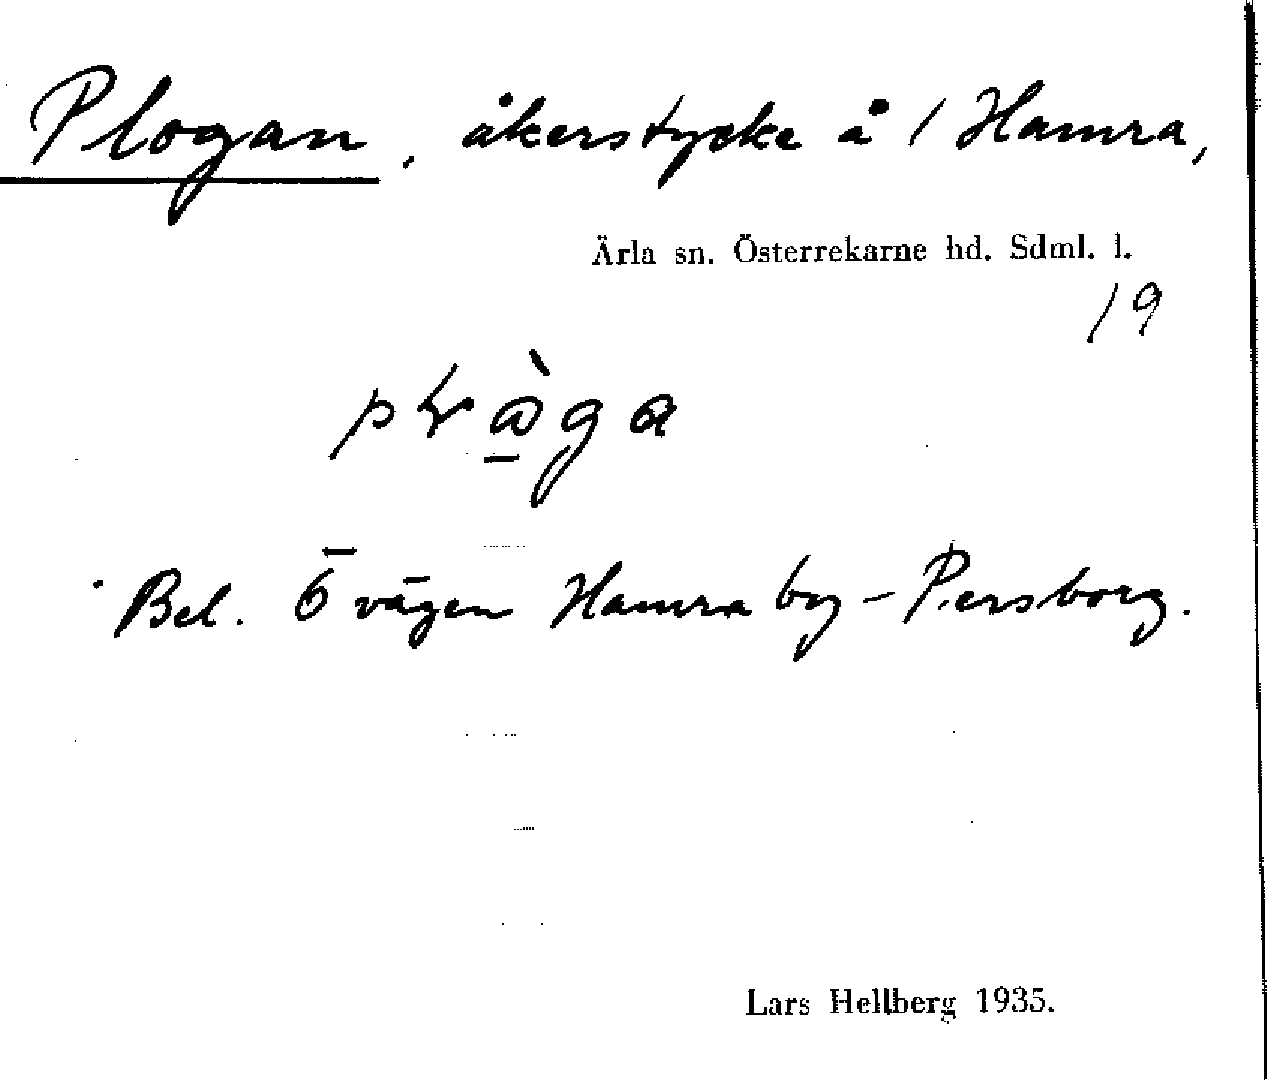 Plogan, åkerstycke å 1 Hamra,
Ärla sn. Österrekarne hd. Sdml. l.
19
Bel. Ö vägen Hamra by - Persborg.
Lars Hellberg 1935.